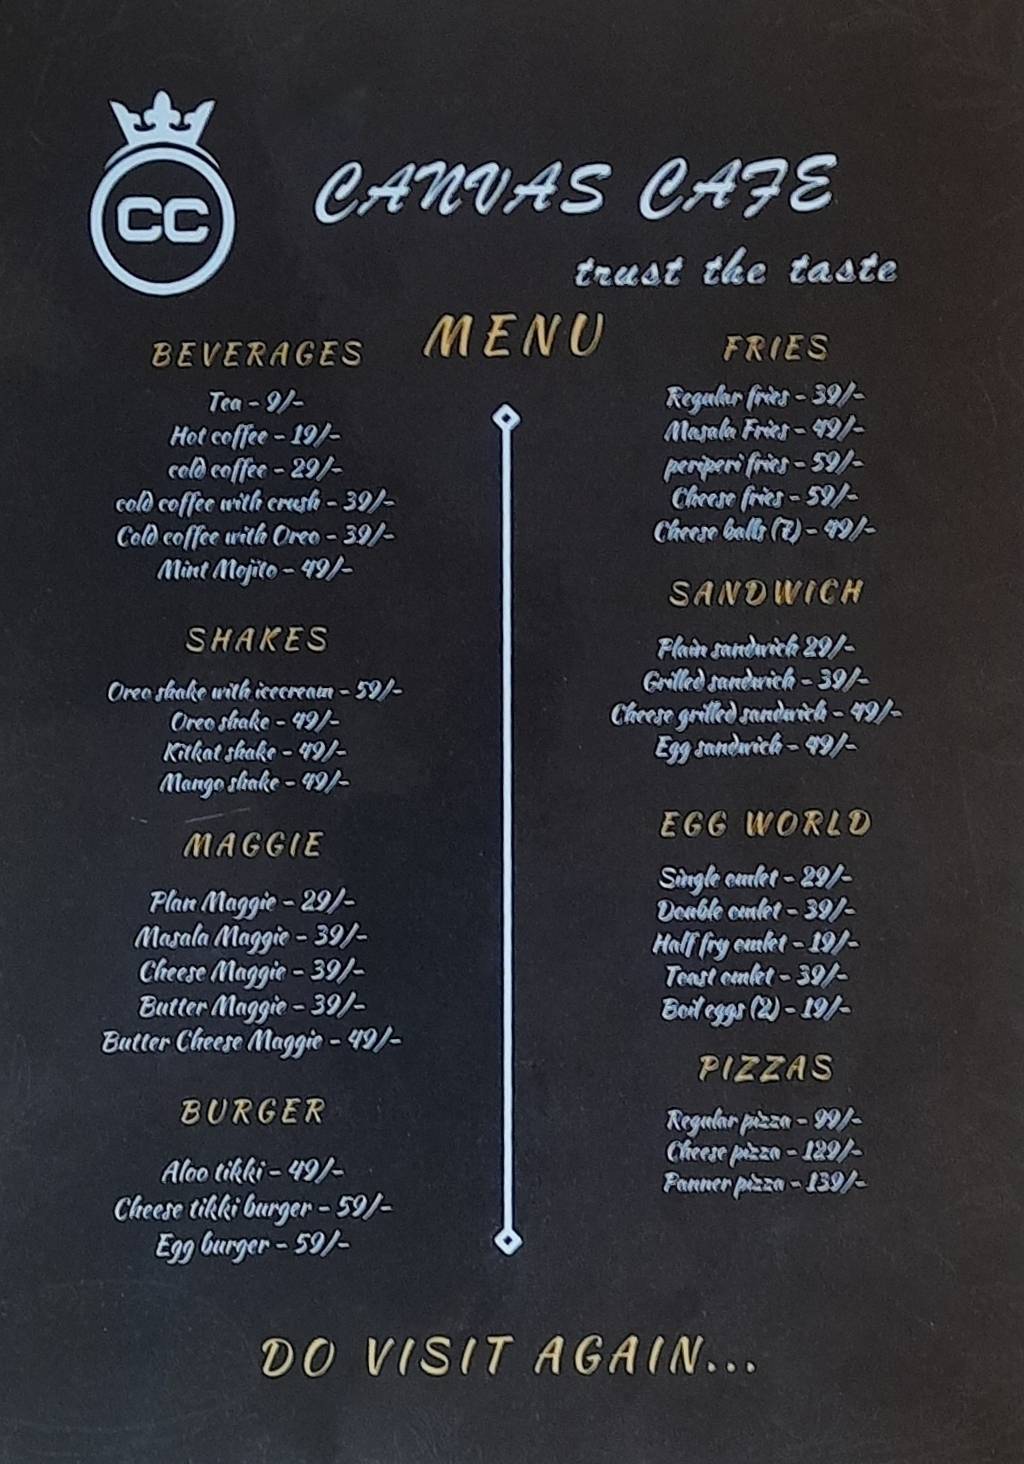 CC
CANVAS CAFE
trust the taste
MENU
BEVERAGES
Tea - 9/-
Hot coffee - 19/-
cold coffee - 29/-
cold coffee with crush - 39/-
Cold coffee with Oreo - 39/-
Mint Mojito - 49/-
SHAKES
Oreo shake with icecream - 59/-
Oreo shake - 49/-
Kitkat shake - 49/-
Mango shake - 49/-
MAGGIE
Plan Maggie - 29/-
Masala Maggie - 39/-
Cheese Maggie - 39/-
Butter Maggie - 39/-
Butter Cheese Maggie - 49/-
BURGER
Aloo tikki - 49/-
Cheese tikki burger - 59/-
Egg burger - 59/-
FRIES
Regular fries - 39/-
Masala Fries - 49/-
periperi fries - 59/-
Cheese fries - 59/-
Cheese balls (7) - 49/-
SANDWICH
Plain sandwich 29/-
Grilled sandwich - 39/-
Cheese grilled sandwich - 49/-
Egg sandwich - 49/-
EGG WORLD
Single omlet - 29/-
Double omlet - 39/-
Half fry omlet - 19/-
Toast omlet - 39/-
Boil eggs (2) - 19/-
PIZZAS
Regular pizza - 99/-
Cheese pizza - 129/-
Panner pizza - 139/-
DO VISIT AGAIN...